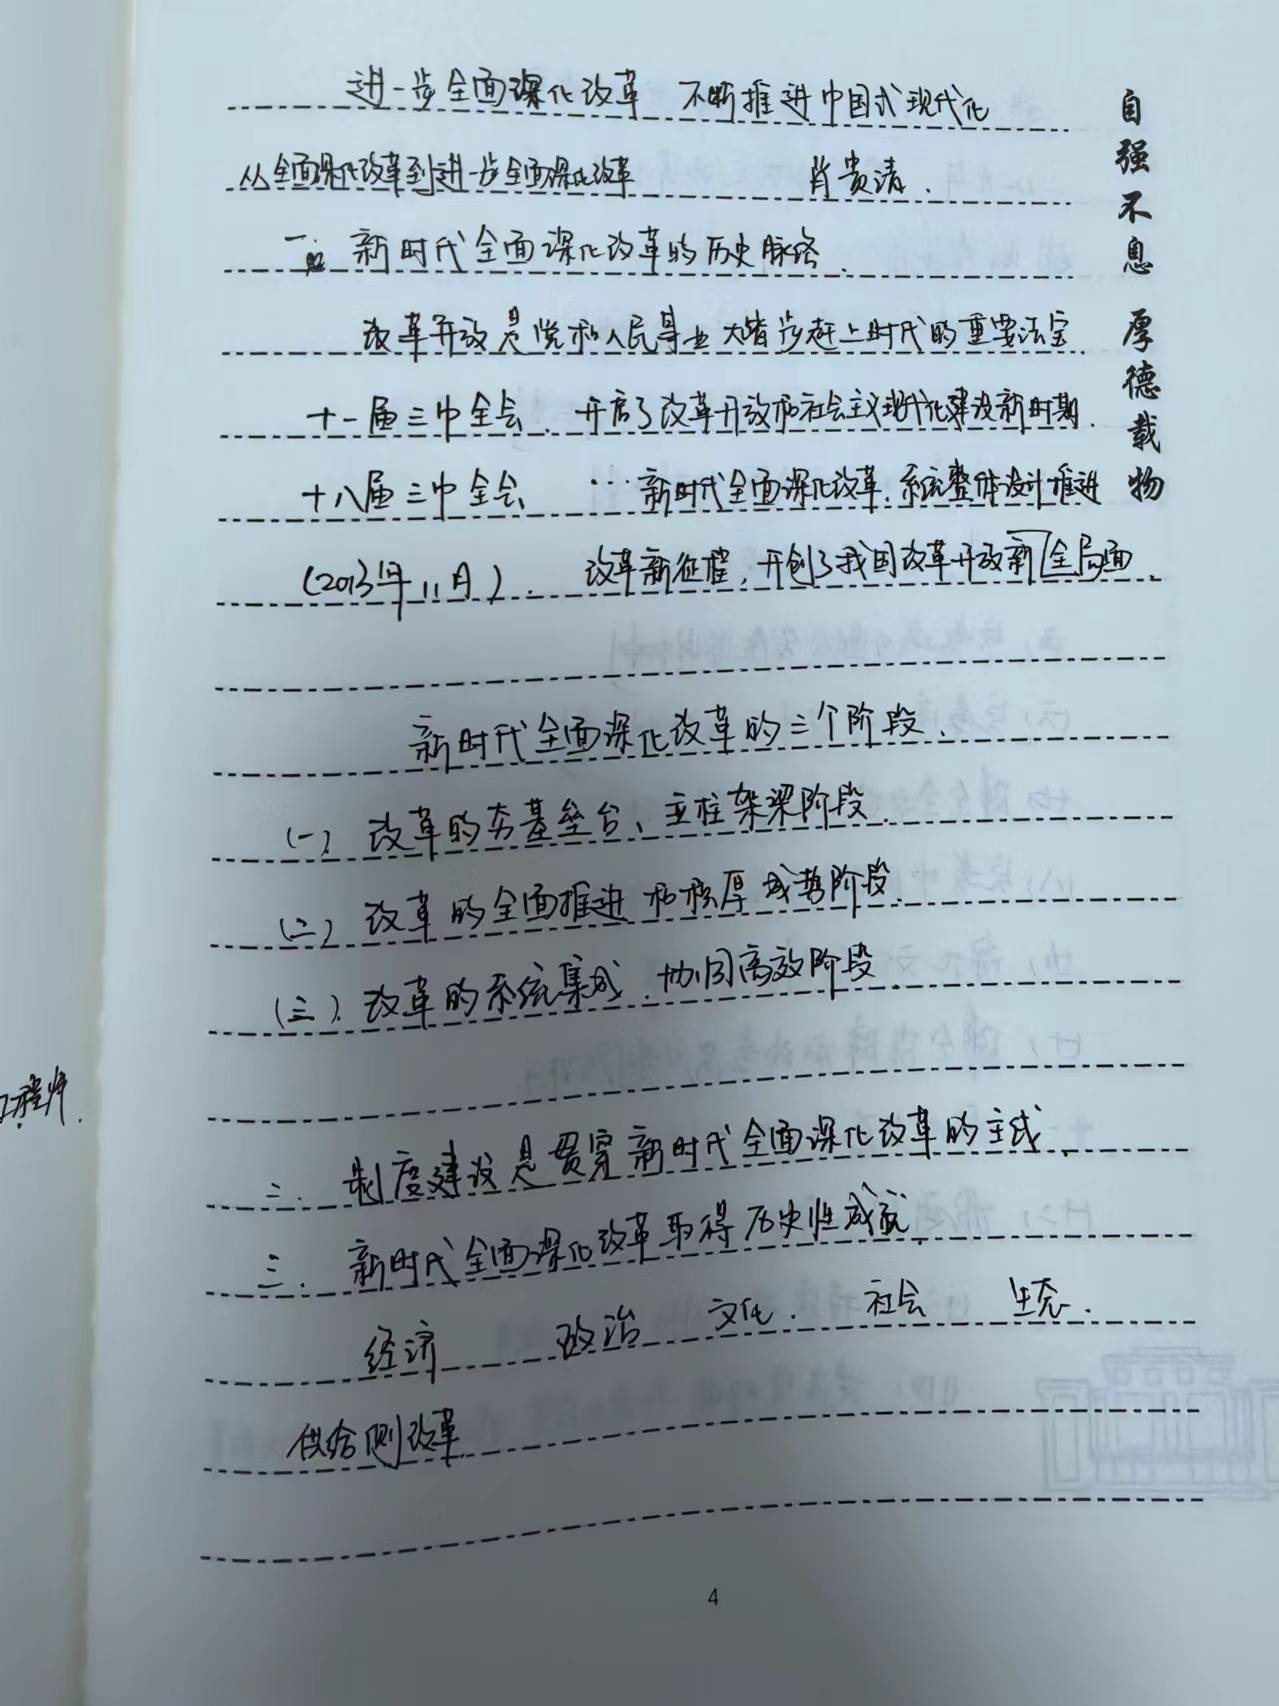 进一步全面深化改革 不断推进中国式现代化
从全面深化改革到进一步全面深化改革 肖贵清.
一. 新时代全面深化改革的历史脉络.
改革开放是党和人民事业大踏步赶上时代的重要法宝.
十一届三中全会. 开启了改革开放和社会主义现代化建设新时期.
十八届三中全会 … 新时代全面深化改革.系统整体设计推进
(2013年11月). 改革新征程,开创了我国改革开放新全局面.
新时代全面深化改革的三个阶段.
(一) 改革的夯基垒台、立柱架梁阶段.
(二) 改革的全面推进和积厚成势阶段.
(三). 改革的系统集成.协同高效阶段.
二. 制度建设是贯穿新时代全面深化改革的主线.
三. 新时代全面深化改革取得历史性成就.
经济 政治 文化. 社会 生态.
供给侧改革.
工程师.
自强不息 厚德载物
4